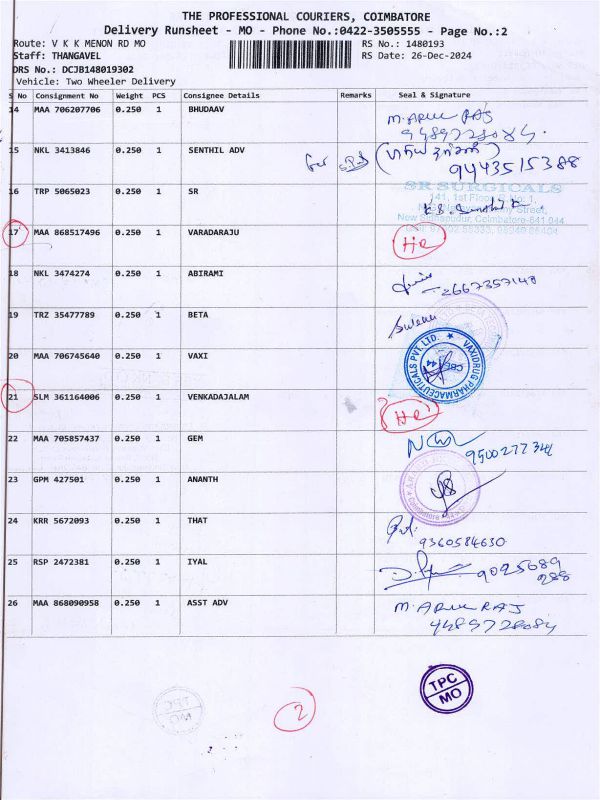 THE PROFESSIONAL COURIERS, COIMBATORE
Delivery Runsheet - MO - Phone No.:0422-3505555 - Page No.:2
Route: V K K MENON RD MO RS No.: 1480193
Staff: THANGAVEL RS Date: 26-Dec-2024
DRS No.: DCJB148019302
Vehicle: Two Wheeler Delivery
S No Consignment No Weight PCS Consignee Details Remarks Seal & Signature
14 MAA 706207706 0.250 1 BHUDAAV
M. ARUL RAJ
15 NKL 3413846 0.250 1 SENTHIL ADV
9443515388
16 TRP 5065023 0.250 1 SR
SR SURGICALS
141, 1st Floor
New Siddhapudur, Coimbatore-641 044
17 MAA 868517496 0.250 1 VARADARAJU
18 NKL 3474274 0.250 1 ABIRAMI
2667357148
19 TRZ 35477789 0.250 1 BETA
20 MAA 706745640 0.250 1 VAXI
VAXIDRUG PHARMACEUTICALS PVT. LTD.
CBE 44
21 SLM 361164006 0.250 1 VENKADAJALAM
22 MAA 705857437 0.250 1 GEM
23 GPM 427501 0.250 1 ANANTH
24 KRR 5672093 0.250 1 THAT
9360584630
25 RSP 2472381 0.250 1 IYAL
9025689
288
26 MAA 868090958 0.250 1 ASST ADV
M. ARUL RAJ
4489728084
TPC
MO
TPC
MO
2